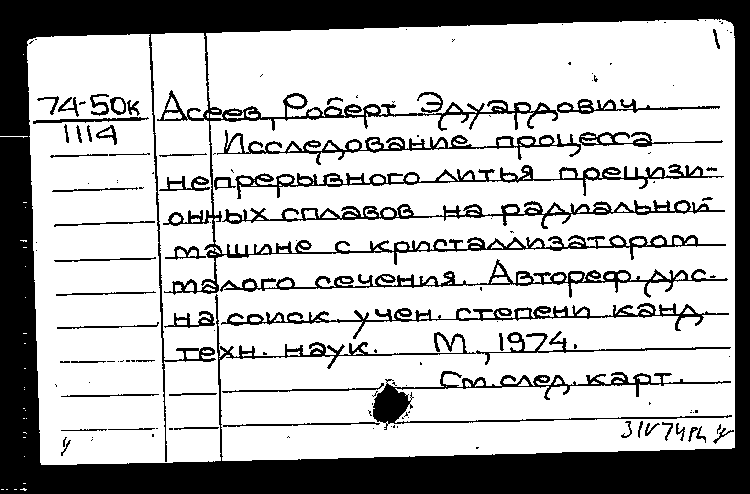 1
74-50к Асеев, Роберт Эдуардович.
1114 Исследование процесса
непрерывного литья прецизи-
онных сплавов на радиальной
машине с кристаллизатором
малого сечения. Автореф. дис.
на соиск. учен. степени канд.
техн. наук. М., 1974.
См. след. карт.